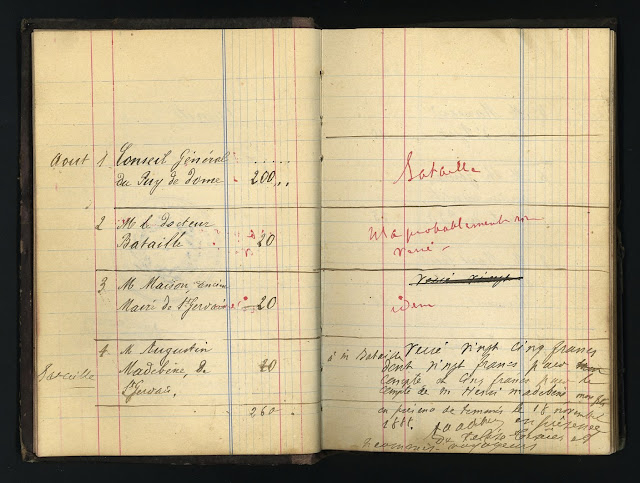 Aout 1 Conseil Général
du Puy de dome 200
2 M le docteur
Bataille 20
3 M Maison, ancien
Maire de St Gervais 20
4 M Augustin
Bataille Madebène, de 20
St Gervais.
260
Bataille
N'a probablement rien
versé
Versé vingt
idem
à M Bataille Versé vingt cinq francs
dont vingt francs pour
compte et cinq francs pour le
compte de M Henri Madebène mon
en présence de témoins le 18 novembre
1888. en présence
de
voyageurs